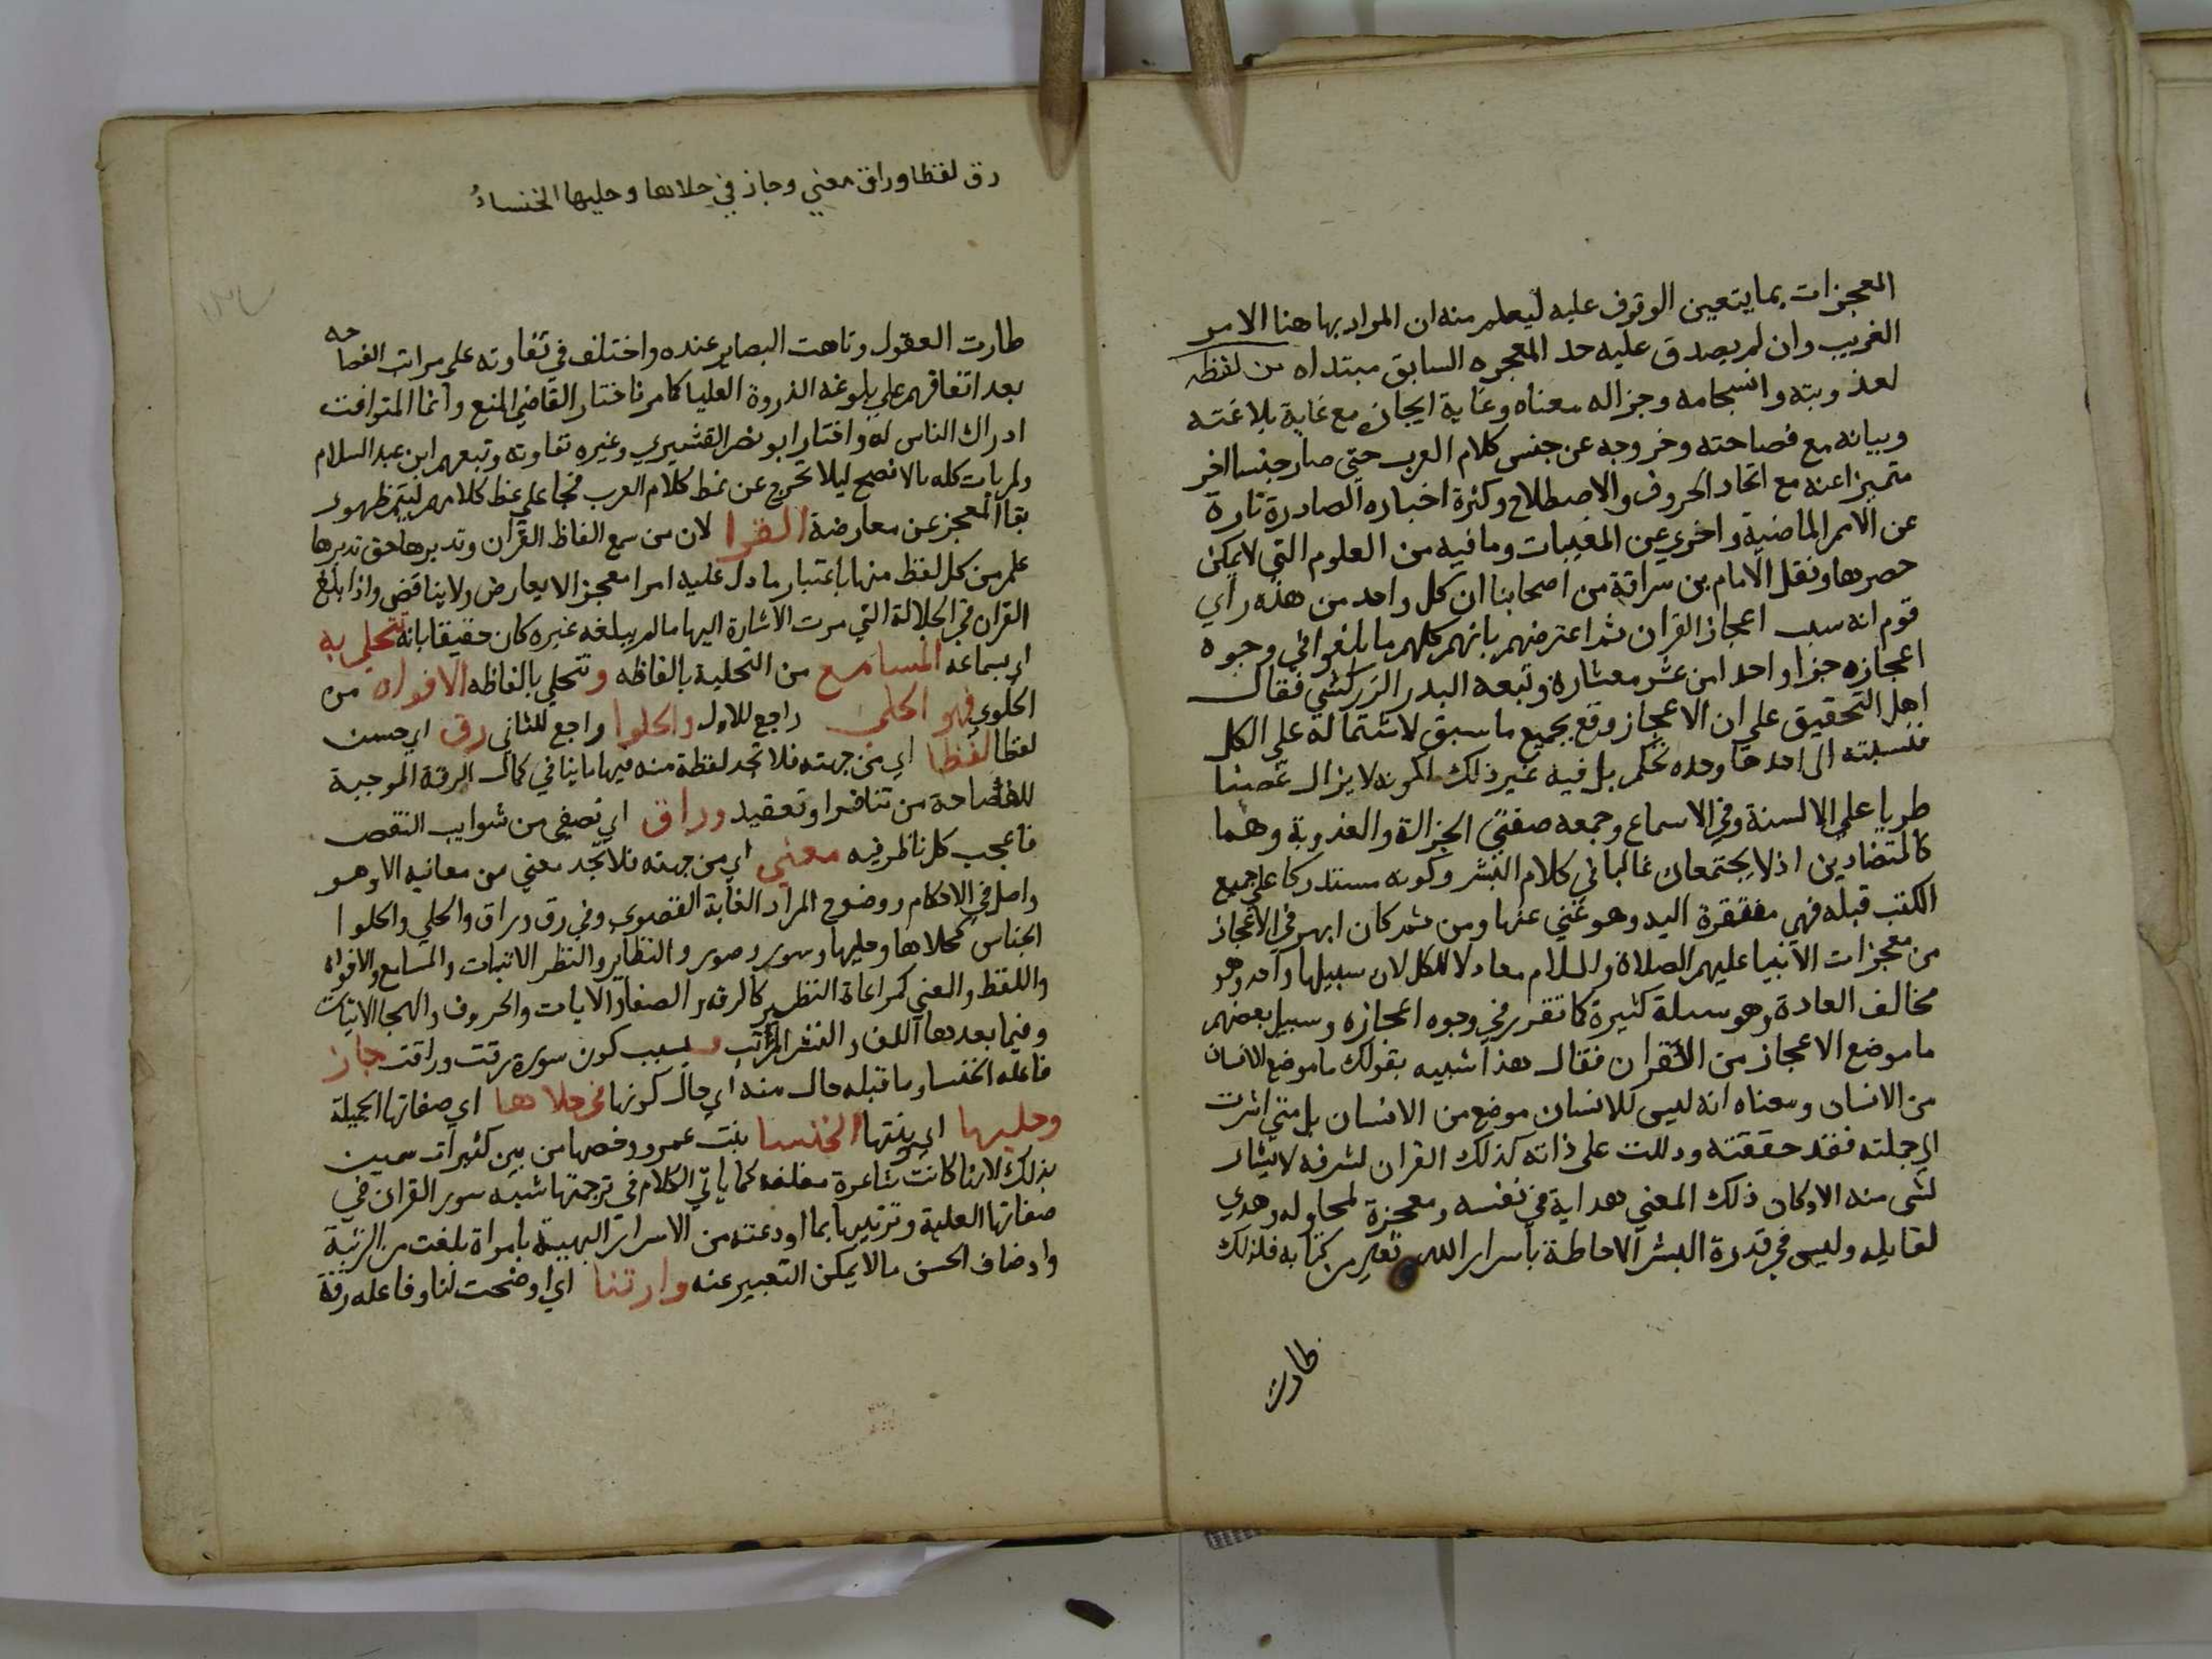 المعجزات بما يتعين الوقوف عليه ليعلم منه ان المراد بها هنا الامر
الغريب وان لم يصدق عليه حد المعجزه السابق مبتداه من لفظه
لعذوبته وانسجامه وجزاله معناه وغاية ايجازه مع غاية بلاغته
وبيانه مع فصاحته وخروجه عن جنس كلام العرب حتى صار جنسا اخر
متميزا عنه مع اتحاد الحروف والاصطلاح وكثرة اخباره الصادرة تارة
عن الامر الماضية واخري عن المغيبات وما فيه من العلوم التي لا يمكن
حصرها ونقل الامام بن سراقة من اصحابنا ان كل واحد من هذه راي
قوم انه سبب اعجاز القران ثم اعترضهم بانهم كلهم ما بلغوا في وجوه
اعجازه جزا واحدا من عشر معشاره وتبعه البدر الزركشي فقال
اهل التحقيق علي ان الاعجاز وقع بجميع ما سبق لاشتماله علي الكل
فنسبته الى احدها وحده تحكم بل فيه غير ذلك ككونه لا يزال غصنا
طريا علي الالسنة وفي الاسماع وجمعه صفتي الجزالة والعذوبة وهما
كالمتضادين اذ لا يجتمعان غالبا في كلام البشر وكونه مستدركا علي جميع
الكتب قبله فهي مفتقرة اليه وهو غني عنها ومن ثم كان ابهر في الاعجاز
من معجزات الانبيا عليهم الصلاة والسلام معادلا للكل لان سبيلها واحد وهو
مخالف العادة وهو سبلة كثيرة كما تقرر في وجوه اعجازه وسيل بعضهم
ما موضع الاعجاز من القران فقال هذا شبيه بقولك ما موضع الانسان
من الانسان ومعناه انه ليس للانسان موضع من الانسان بل متي اشرت
الى جملته فقد حققته ودللت على ذاته كذلك القران لشرفه لا يشار
لشي منه الا وكان ذلك المعني هداية في نفسه ومعجزة لمحاوله وهدي
لقايله وليس في قدرة البشر الاحاطة باسرار الله تعالى من كتابه فلذلك
طارت
رق لفظا وراق معني وجاز في حلاها وحليها الخنساء
طارت العقول وتاهت البصاير عنده واختلف في تفاوته على مراتب الفصاحه
بعد اتفاقهم علي بلوغه الذروة العليا كما مر فاختار القاضي المنع وانما المتوافت
ادراك الناس له واختار ابو نصر القشيري وغيره تفاوته وتبعهم ابن عبد السلام
ولم يات كله بالافصح ليلا تخرج عن نمط كلام العرب فجا علي نمط كلامهم ليتم ظهور
بقا المعجز عن معارضة القرا لان من سمع الفاظ القران وتدبرها حق تدبرها
علم من كل لفظ منها باعتبار ما دل عليه امرا معجزا لا يعارض ولا يناقض واذا بلغ
القران في الجلالة التي مرت الاشارة اليها ما لم يبلغه غيره كان حقيقا بانه تتحلي به
اي بسماعه المسامع من التحلية بالفاظه وتتحلي بالفاظه الافواه من
الحلوي فهو الحلي راجع للاول والحلوا راجع للثاني رق اي حسن
لفظا لفظا اي من جهته فلا تجد لفظة منه فيها ما ينافي كمال الرقة الموجبة
للفصاحة من تنافر او تعقيد وراق اي تصفي من شوايب النقص
فاعجب كل ناظر فيه معني اي من جهته فلا تجد معني من معانيه الا وهو
واصل في الاحكام ووضوح المراد الغاية القصوي وفي رق وراق والحلي والحلوا
الجناس كحلاها وحليها وسور وصور والنظاير والنظر الاثبات والمسامع والافواه
واللفظ والمعني كمراعاة النظير كالرقه والصفا والايات والحروف والهجا الاتيات
وفيما بعدها اللف والنشر المرتب وبسبب كون سوره رقت وراقت جاز
فاعله الخنسا وما قبله حال منه اي حال كونها في حلاها اي صفاتها الجميلة
وحليها اي زينتها الخنسا بنت عمرو وخصها من بين كثيرات سمين
بذلك لانها كانت شاعرة مفلقة كما ياتي الكلام في ترجمتها شبه سور القران في
صفاتها العلية وتزيينها بما اودعته من الاسرار البهية بامراة بلغت من الزينة
واوضاف الحسن ما لا يمكن التعبير عنه وارتنا اي اوضحت لنا وفاعله رقة